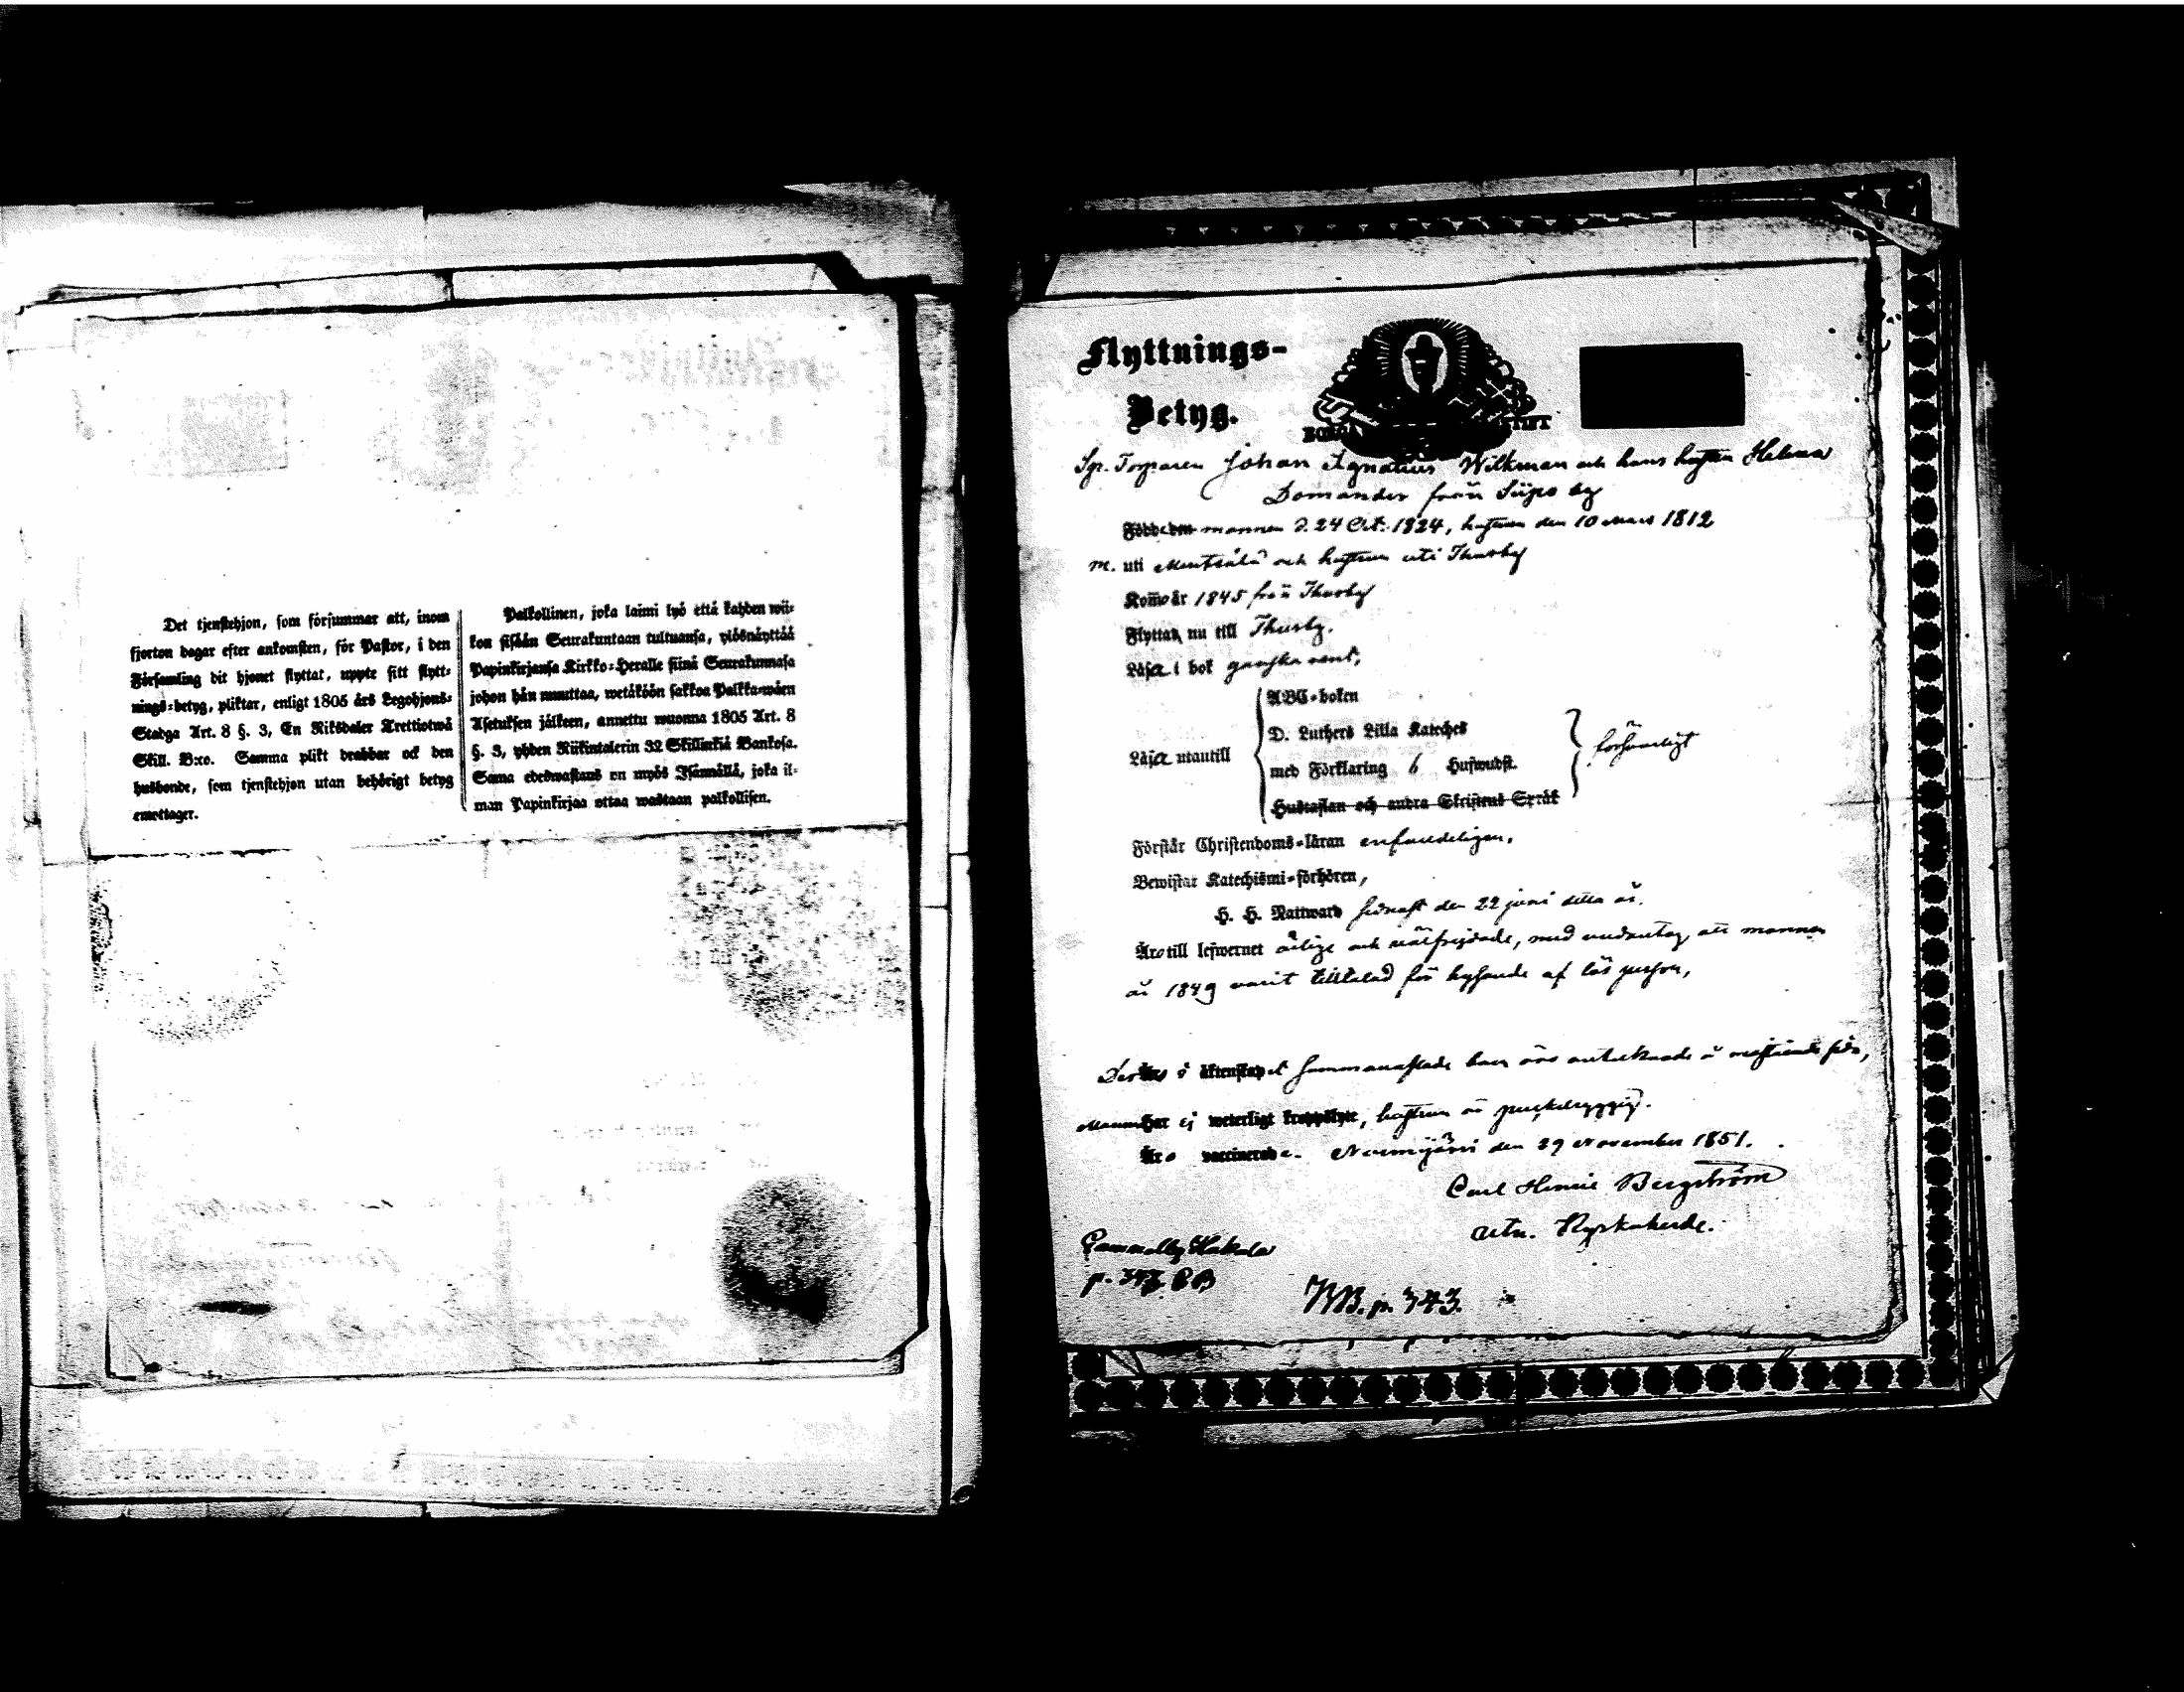 Det tjenstehjon, som försummar att, inom
fjorton dagar efter ankomsten, för Pastor, i den
Församling dit hjonet flyttat, uppte sitt flytt-
nings-betyg, pliktar, enligt 1805 års Legohjons-
Stadga Art. 8 §. 3, En Riksdaler Trettiotwå
Skill. B:co. Samma plikt drabbar ock den
husbonde, som tjenstehjon utan behörigt betyg
emottager.
Palkollinen, joka laimi lyö että kahden wii-
kon sisään Seurakuntaan tultuansa, ylösnäyttää
Papinkirjansa Kirkko-Heralle siinä Seurakunnasa
johon hän muuttaa, wetäköön sakkoa Palkka-wäen
Asetuksen jälkeen, annettu wuonna 1805 Art. 8
§. 3, yhden Riikintalerin 32 Skillinkiä Bankosa.
Sama edeswastaus on myös Isännällä, joka il-
man Papinkirjaa ottaa wastaan palkollisen.
Flyttnings-
Betyg.
Torparen Johan Ignatius Wilkman och hans hustru Helena
Domander från Siipo by
Född den mannen d. 24 Oct. 1824, hustrun den 10 Mars 1812
m. uti Mentsälä och hustrun uti Thusby
Kom år 1845 från Thusby
Flyttar nu till Thusby.
Läsa i bok ganska rent,
Läsa utantill
ABC-boken
D. Luthers Lilla Kateches
med Förklaring 6 Hufwudst.
Hustaflan och andra Skriftens Språk
försvarligt
Förstår Christendoms-läran enfaldeligen,
Bewistar Katechismi-förhören,
H. H. Nattward sednast den 22 juni detta år.
Äro till lefwernet ärlige och välfrejdade, med undantag att mannen
år 1849 varit tilltalad för hysande af lös person,
i äktenskapet sammanaflade barn äro antecknade å
Mannen Har ej weterligt kroppslyte, hustrun är puckelryggig.
Äro vaccinerade. Nurmijärvi den 29 November 1851.
Carl Henric Bergström
Kyrkoherde.
Gammelby Hakala
p. 347 CB
KB. p. 343.